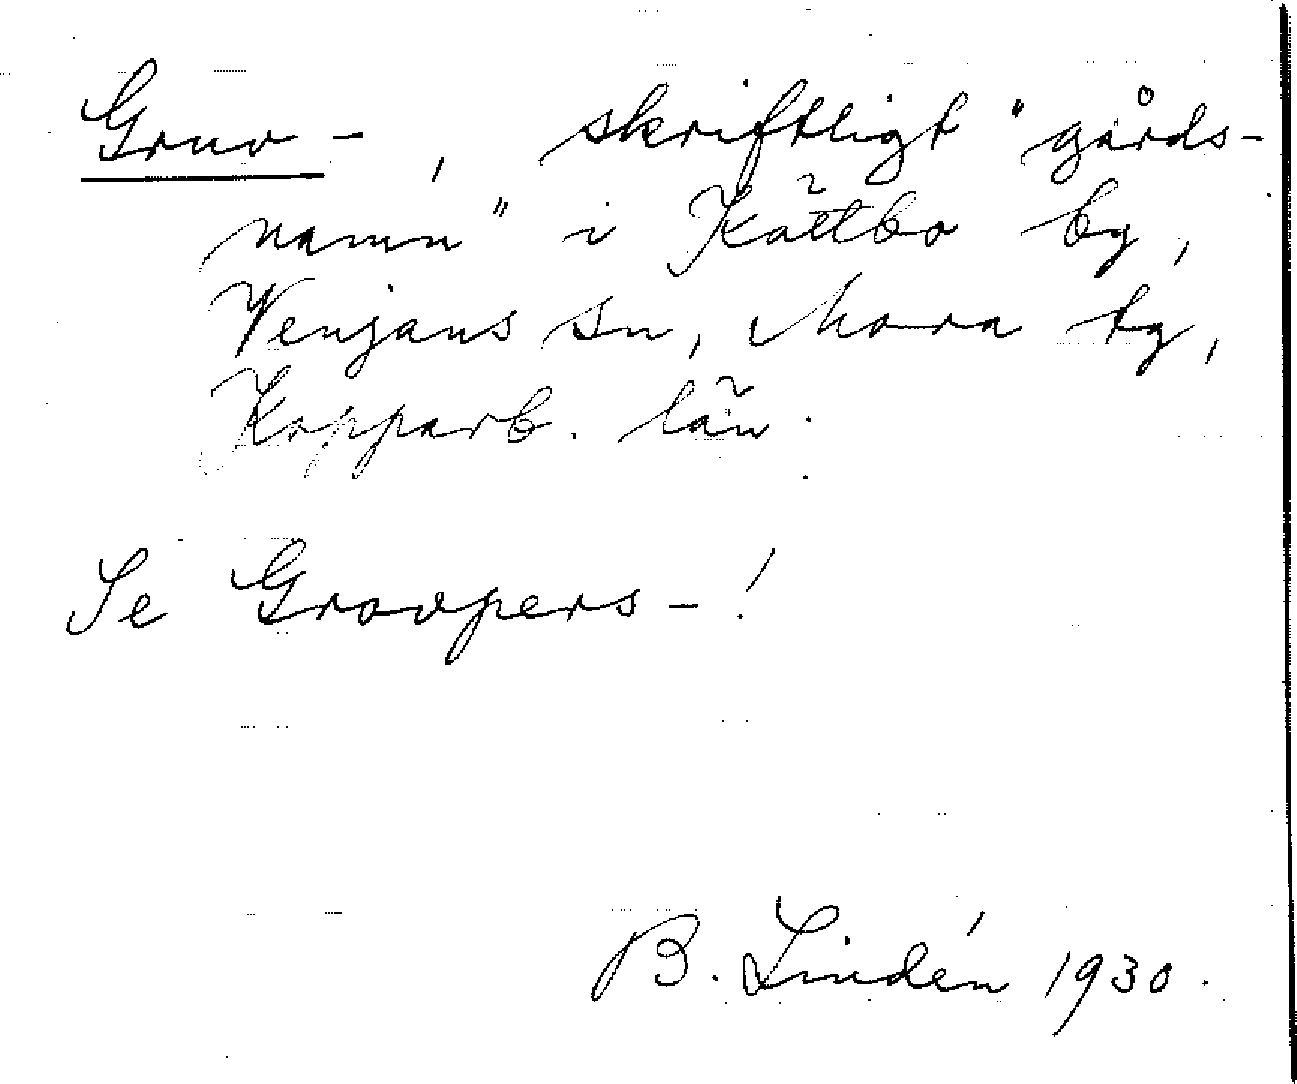 Gruv-, skriftligt "gårds-
namn" i Kättbo by,
Venjans sn, Mora tg,
Kopparb. län.
Se Grovpers-!
B. Lindén 1930.